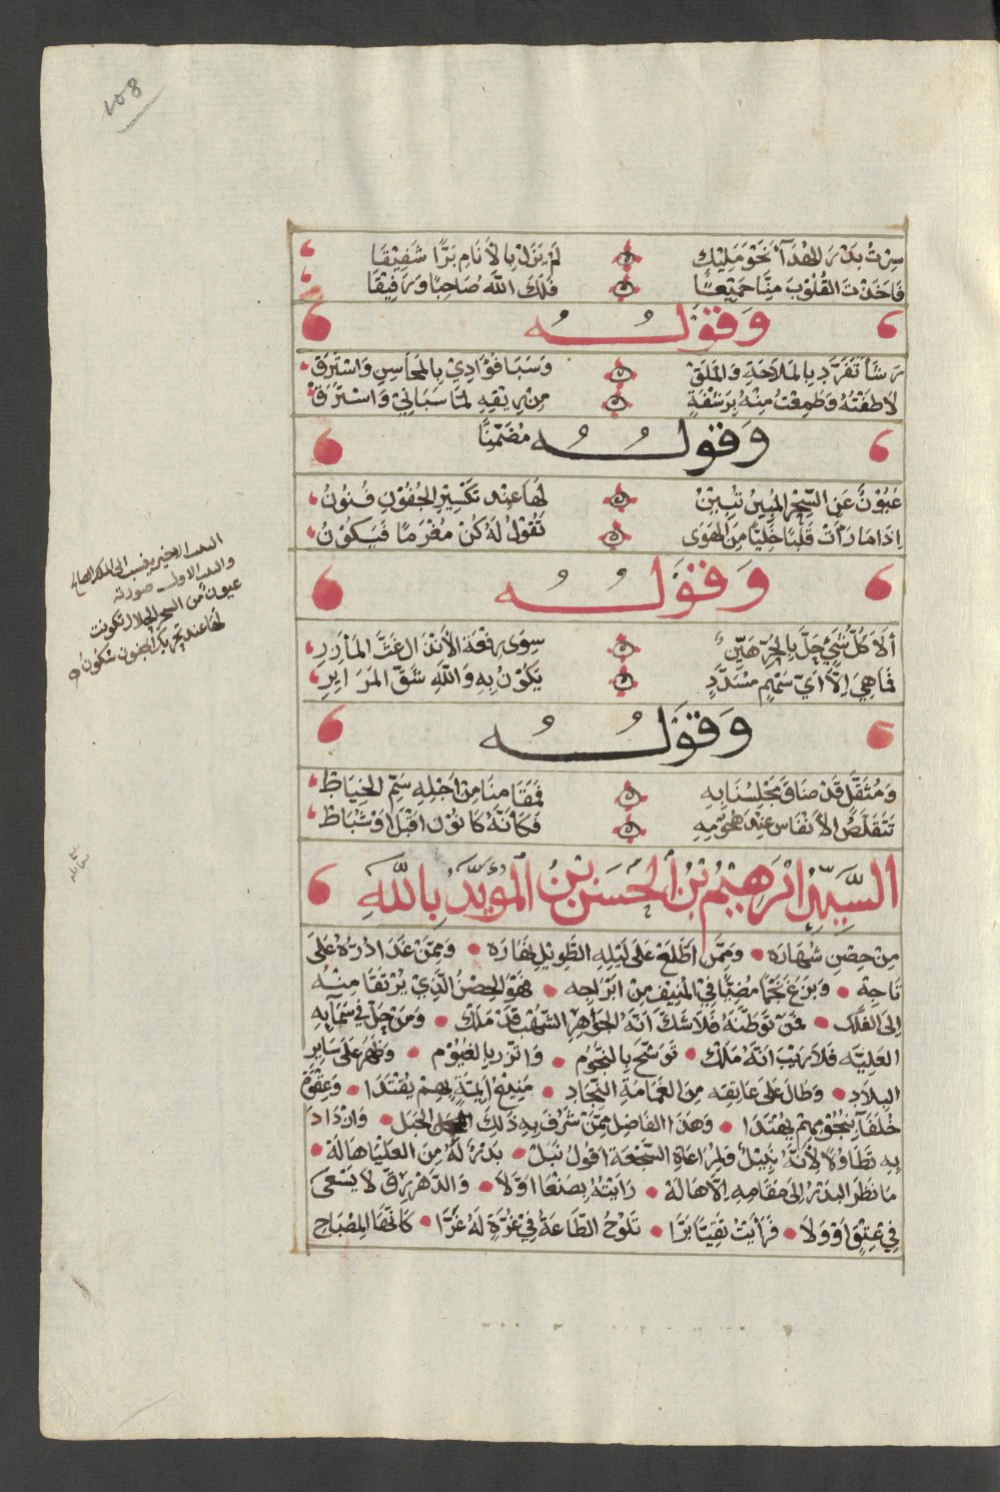 108
سرت بدر الهدا نحو مليك لم يزل بالانام برًّا شفيقا
فاخذت القلوب منا جميعًا فلك الله صاحبا ورفيقا
وقوله
رشأ تفرّد بالملاحة والملق وسبا فؤادي بالمحاسن واسترق
لاطفته وطمعت منه برشفةٍ من ريقه لما سباني واسترق
وقوله مضمّنًا
عيونٌ عن السّحر المبين تبين لها عند تكسير الجفون فنون
اذا ما رأت قلبًا خليًّا من الهوى تقول له كن مغرمًا فيكون
وقوله
ألا كل شيء جلّ بالحرّ هيّن سوى رفعة الأنذال غثّ المأزر
فما هي الّا أي سهم مسدّد يكون به والله شق المراير
وقوله
ومثقّل قد ضاق مجلسنا به فمقامنا من اجله سمّ الخياط
تتقلّص الأنفاس عند هجومه فكأنه كانون اقبل او شباط
السيد ابرهيم بن الحسن بن المؤيد بالله
من حصن شهاره وممن اطلع على ليله الطويل نهاره وممن غدا درّه على
تاجه وبزغ نجمًا مضيًّا في المنيف من ابراجه فهو الحصن الذي يرتقا منه
الى الفلك فمن توطنه فلا شك انه لجواهر الشهب قد ملك ومن حلّ في سمآيه
العليّه فلا ريب انه ملك توشح بالنجوم واتزر بالغيوم وظهر على ساير
البلاد وطال على عاتقه من الغمامة النجاد منبع ايمة بهم يقتدا وعقوة
خلفآ بنجومهم يهتدا وهذا الفاضل ممن شرف به ذلك الجبل وازداد
به تطاولا لأنه نبيل ولمراعاة السجعة اقول نبل بدر له من العليا هالة
ما نظر البدر الى مقامه الّا هاله رايته بصنعا اوّلا والدهر رق لا يسعى
في عتق او ولا فرأيت تقيّا برّا تلوح الطاعة في غرّة له غرّا كأنها المصباح
البيت الاخير ينسب الى الملك الصالح
والبيت الاول صورته
عيون من السحر الحلال تكونت
لها عند تحريك الجفون سكون